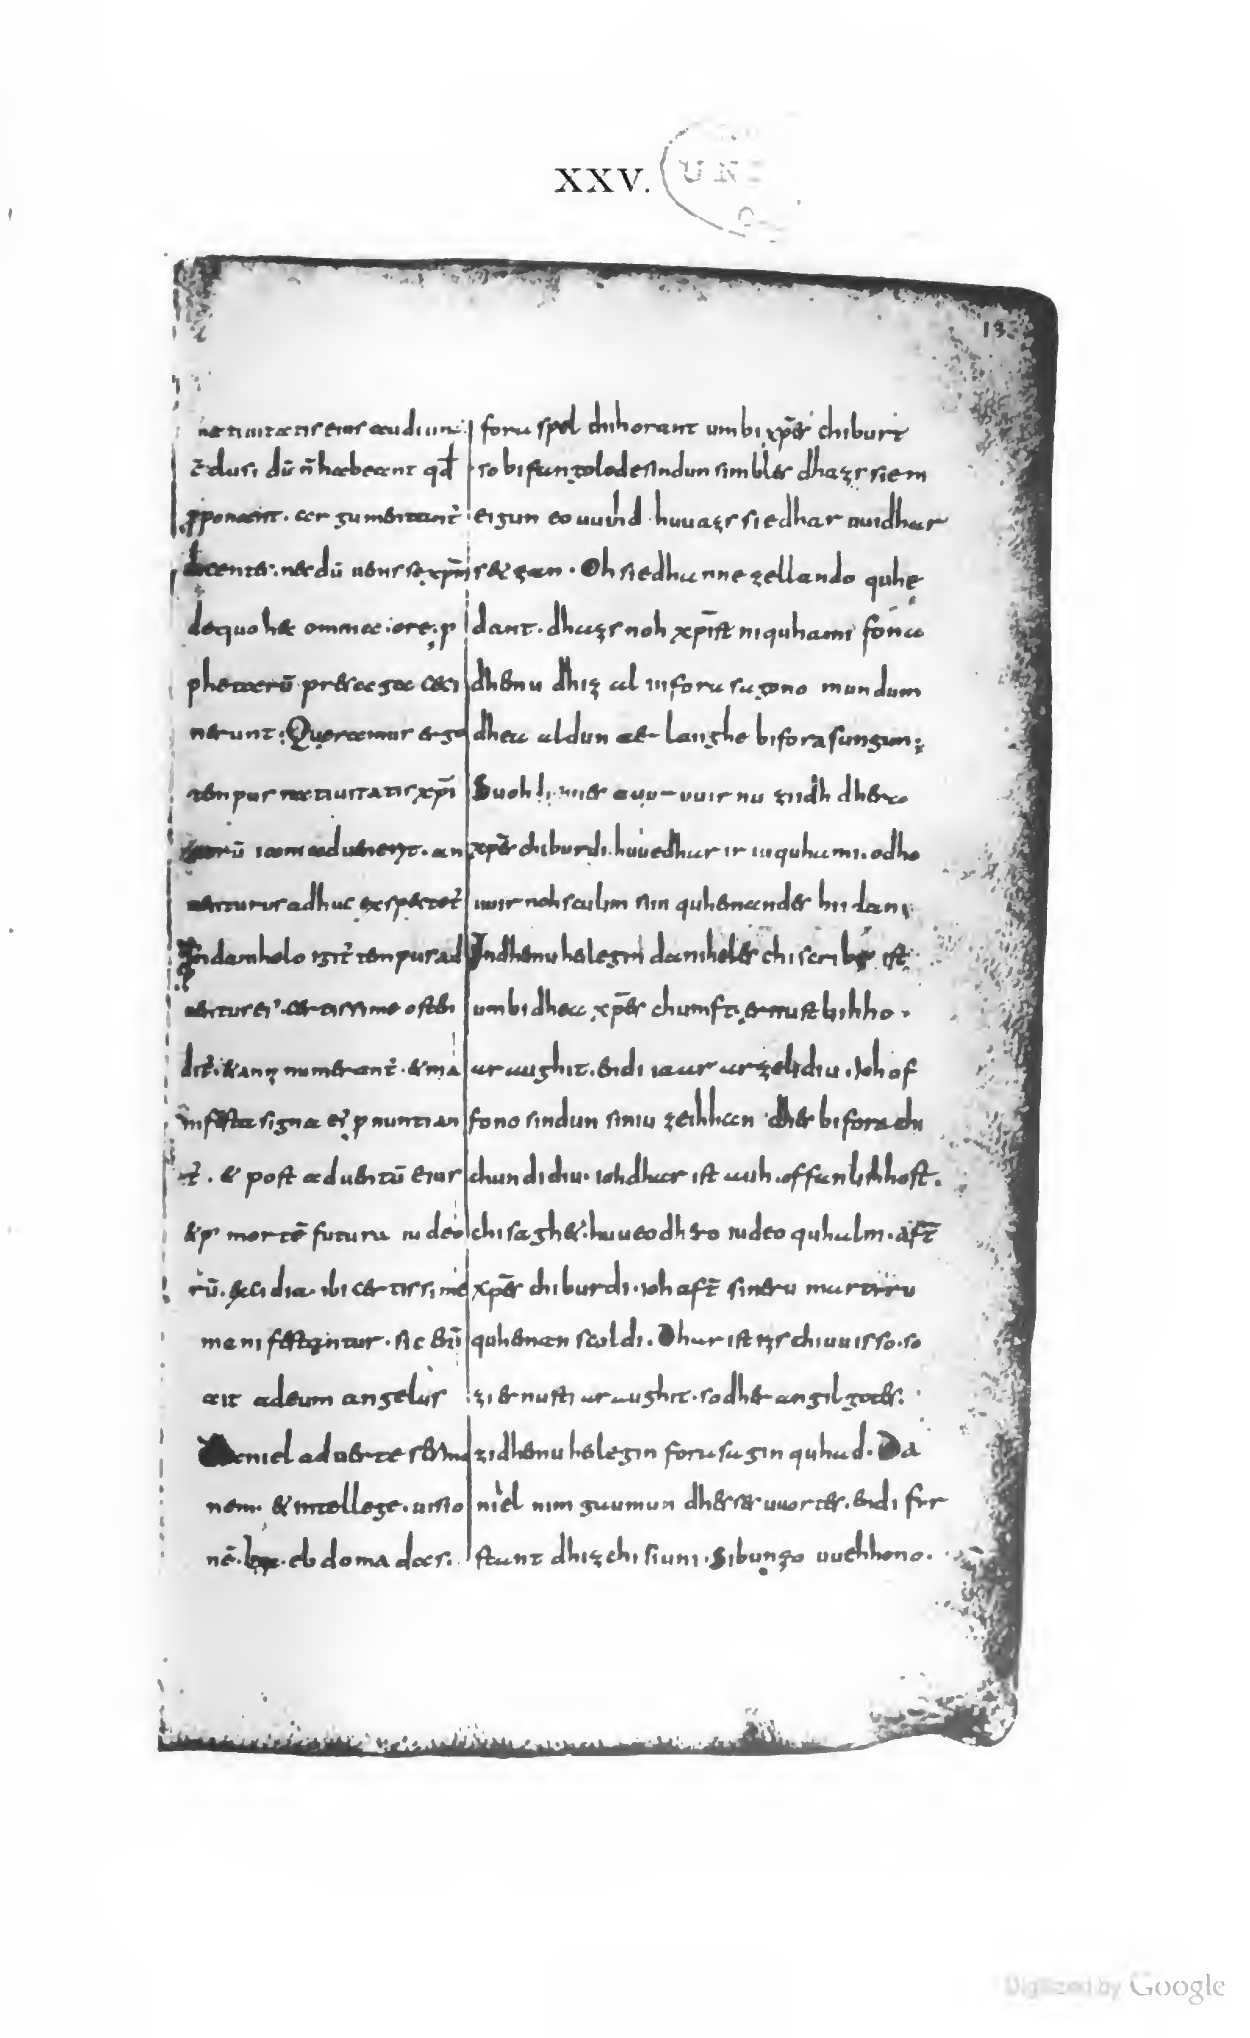 XXV.
natiuitatis eius audiun
t̄. dusi dū n̄ habeant qđ
p̱ponant. argumentant̉
dicentes. nec dū uenisse xp̄m
de quo hæc omnia. ore. p̱
phetarū presaga ceci
nerunt; Queramus ergo
tempus natiuitatis xp̄i
iam aduenerit. an
uenturus adhuc exspectet̉
In danihelo igit̉ tempus ad
uentus ei᾽ certissime osten
dit̉. & anni numerant̉. & ma
nifesta signa ei᾽ p̱nuntian
t̉. & post aduentū eius
& p᾽ mortē futura iudeo
rū. excidia. ibi certissime
manifestantur. sic eni̅
ait ad eum angelus
Daniel aduerte sermo
nem. & intellege. uisio
nē. lxx. ebdomadaes.
fora spel chihorant umbi xp̄es chiburt
so bifangolode sindun simbles dhazs si em
eigun eo uuiđ huuazs si edhar uuidhar
sɛ&zan. Oh sie dhanne zellando quhe
dant. dhazs noh xp̄ist ni quhami fona
dhemu dhiz al in fora sagono mundum
dhea aldun ae langhe bifora sungun;
Suohhemes auur uuir nu ziidh dhera
xp̄es chiburdi. huuedhar ir iu quhami. odho
uuir noh sculun sin quhemandes biidan;
In dhemu heilegin daniheles chiscribe ist
umbi dhea xp̄es chumft. ernustliihho.
araughit. endi iaar arzelidiu. Joh of
fono sindun siniu zeihhan dhes bifora chi
chundidiu. ioh dhar ist auh. offanliihhost.
chisaghet. huueo dhero iudeo quhalm. aft̄
xp̄es chiburdi. ioh aft̄ sineru martyru
quheman scoldi. Dhar ist izs chiuuisso. so
zi ernusti araughit. so dher angil gotes.
zi dhemu heilegin forasagin quhad. Da
niel nim gaumun dheser uuortes. endi fir
stant dhiz chisiuni. Sibunzo uuehhono.